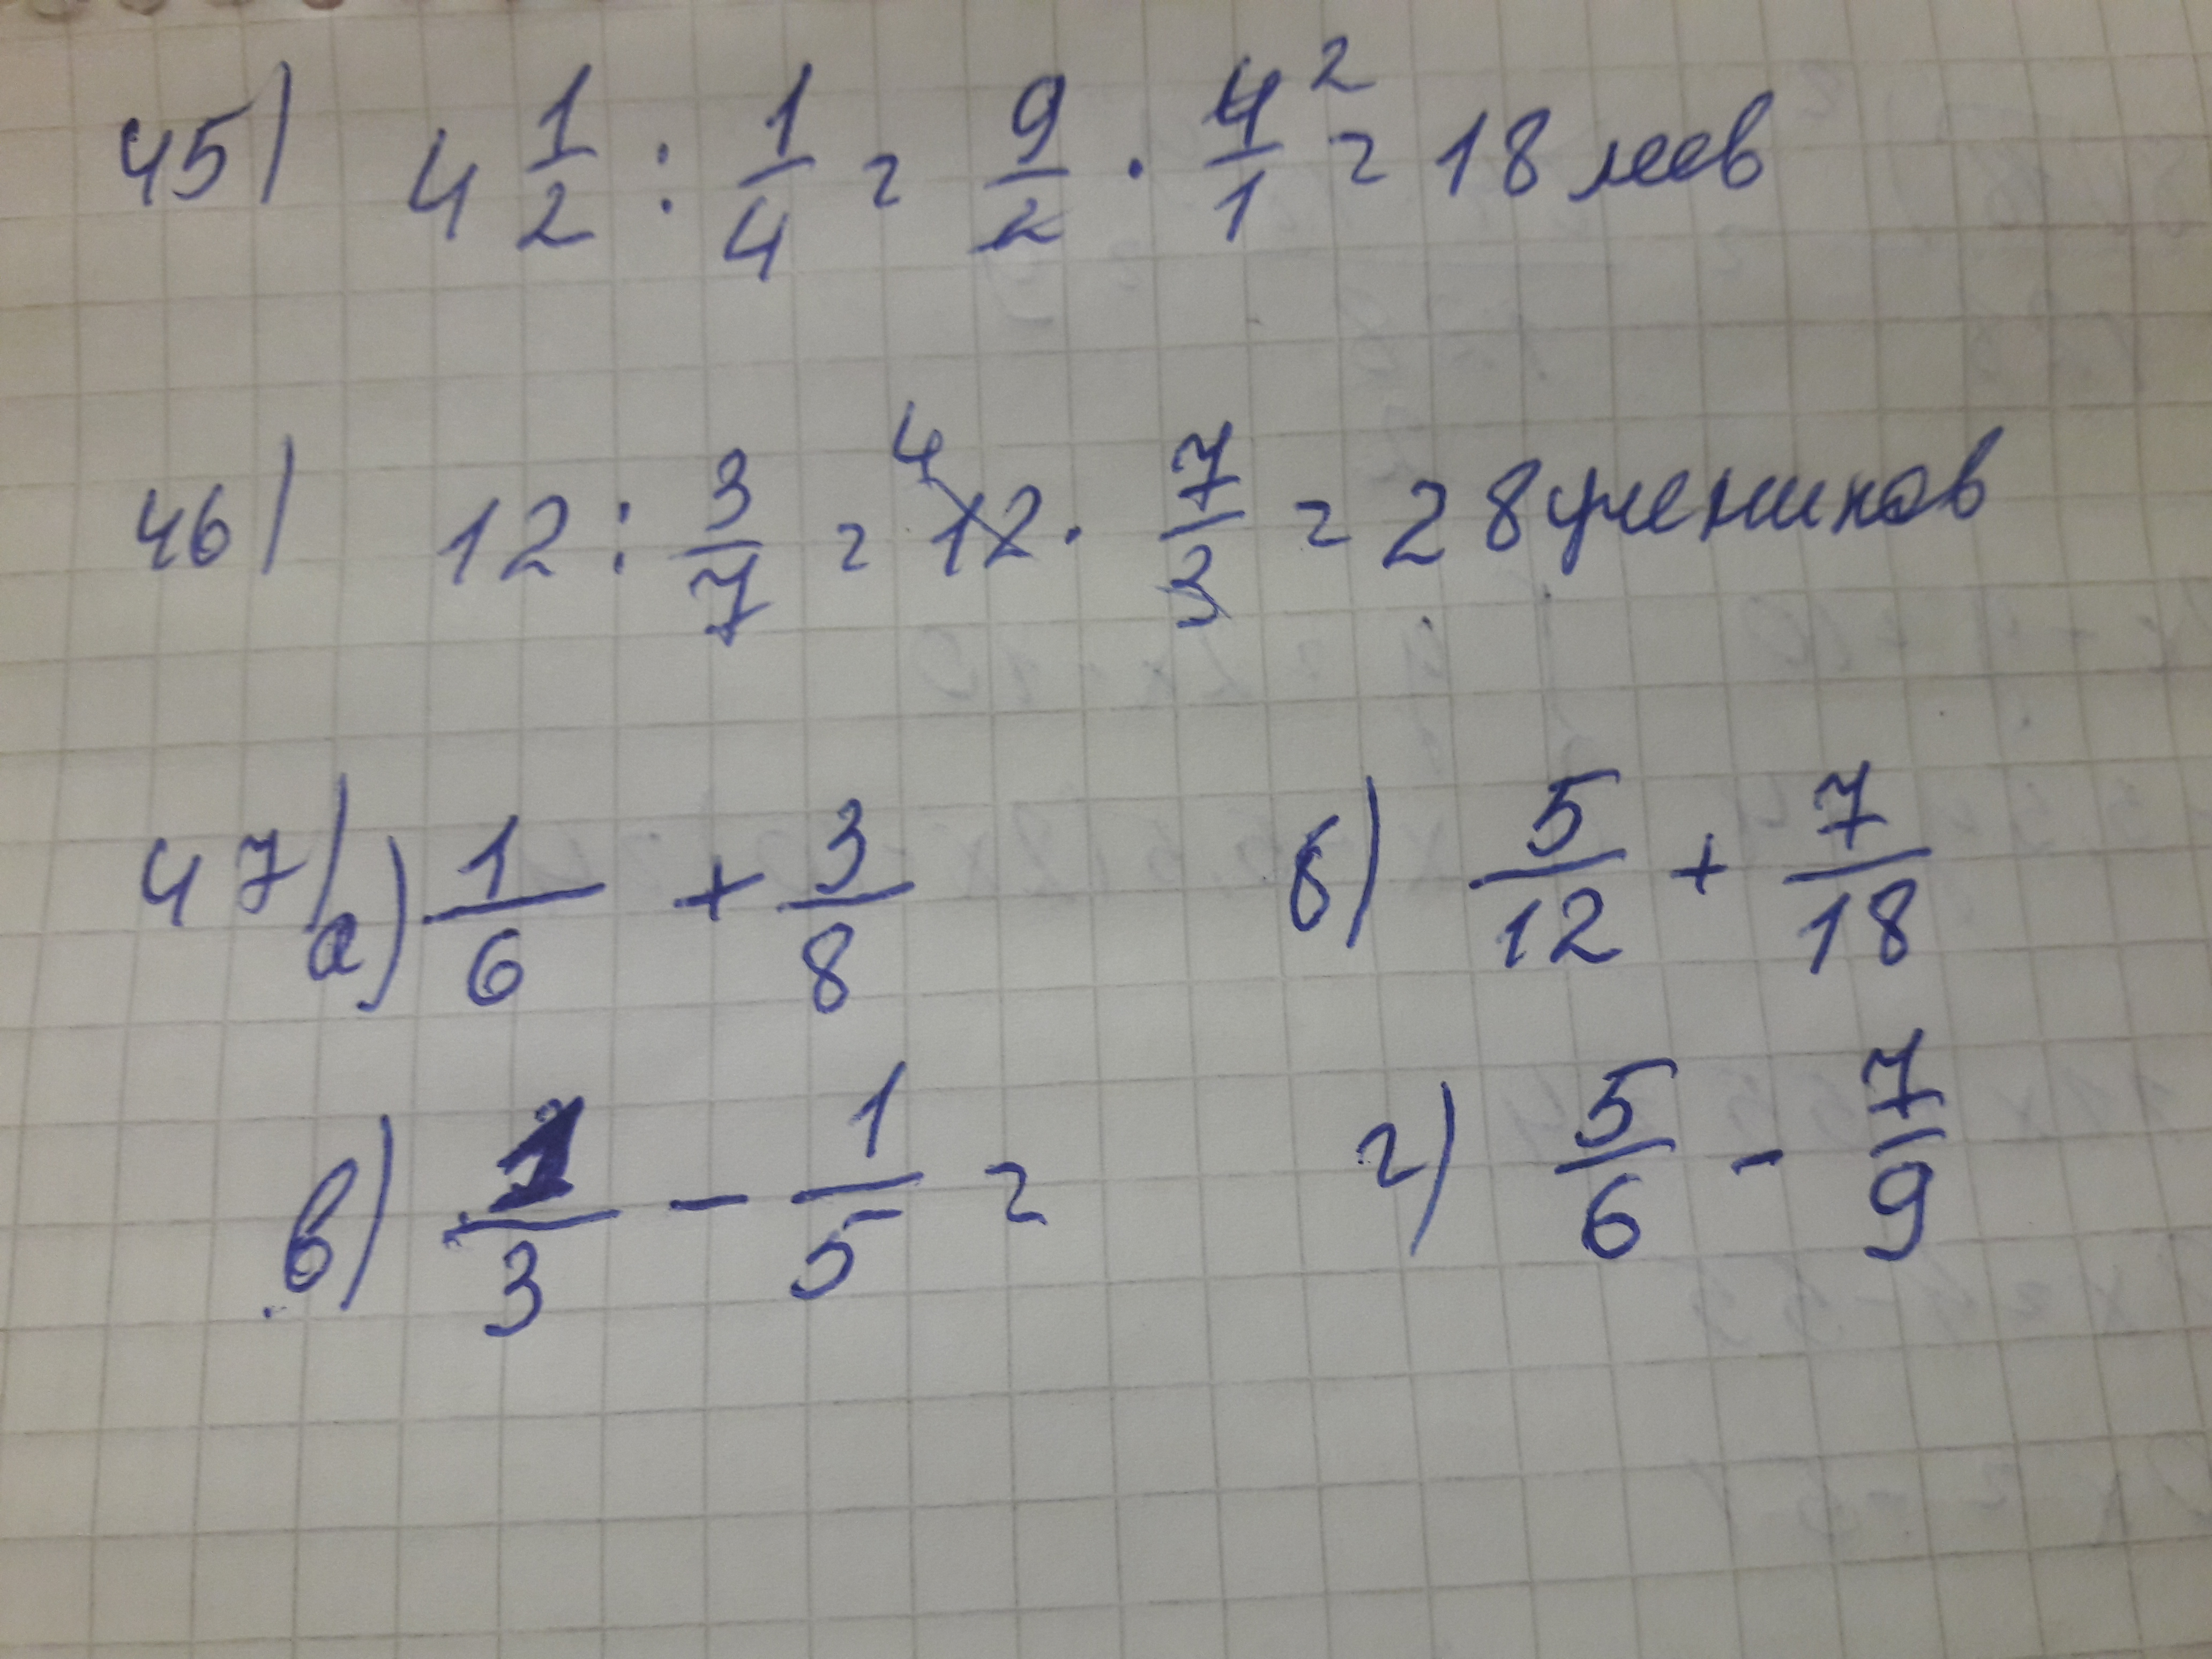 45) 4 1/2 : 1/4 = 9/2 · 4/1 ² = 18 лев
46) 12 : 3/7 = ⁴12 · 7/3 = 28 учеников
47) а) 1/6 + 3/8 б) 5/12 + 7/18
в) 1/3 - 1/5 = г) 5/6 - 7/9